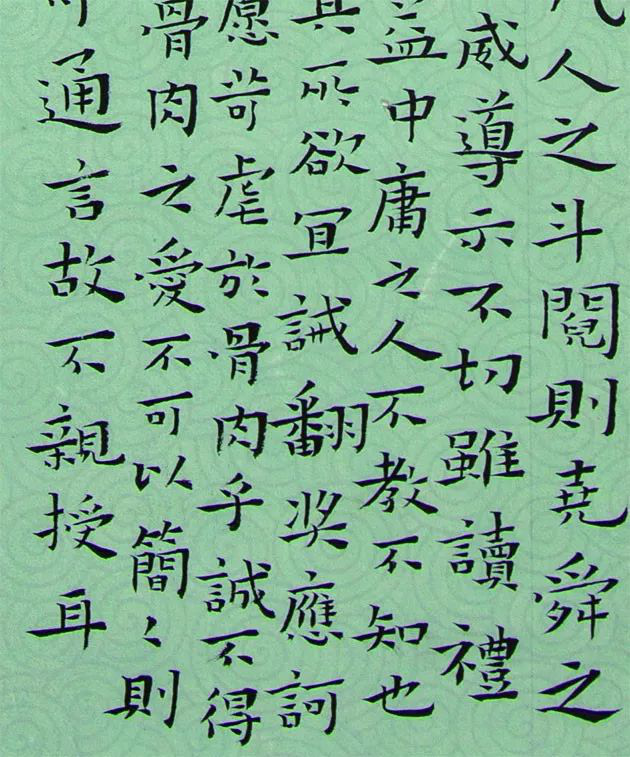 凡人之斗鬩則堯舜之
威導示不切雖讀禮
益中庸之人不教不知也
其所欲冝誡翻奖應訶
愿苛虐於骨肉乎誠不得
骨肉之愛不可以簡〻則
通言故不親授耳